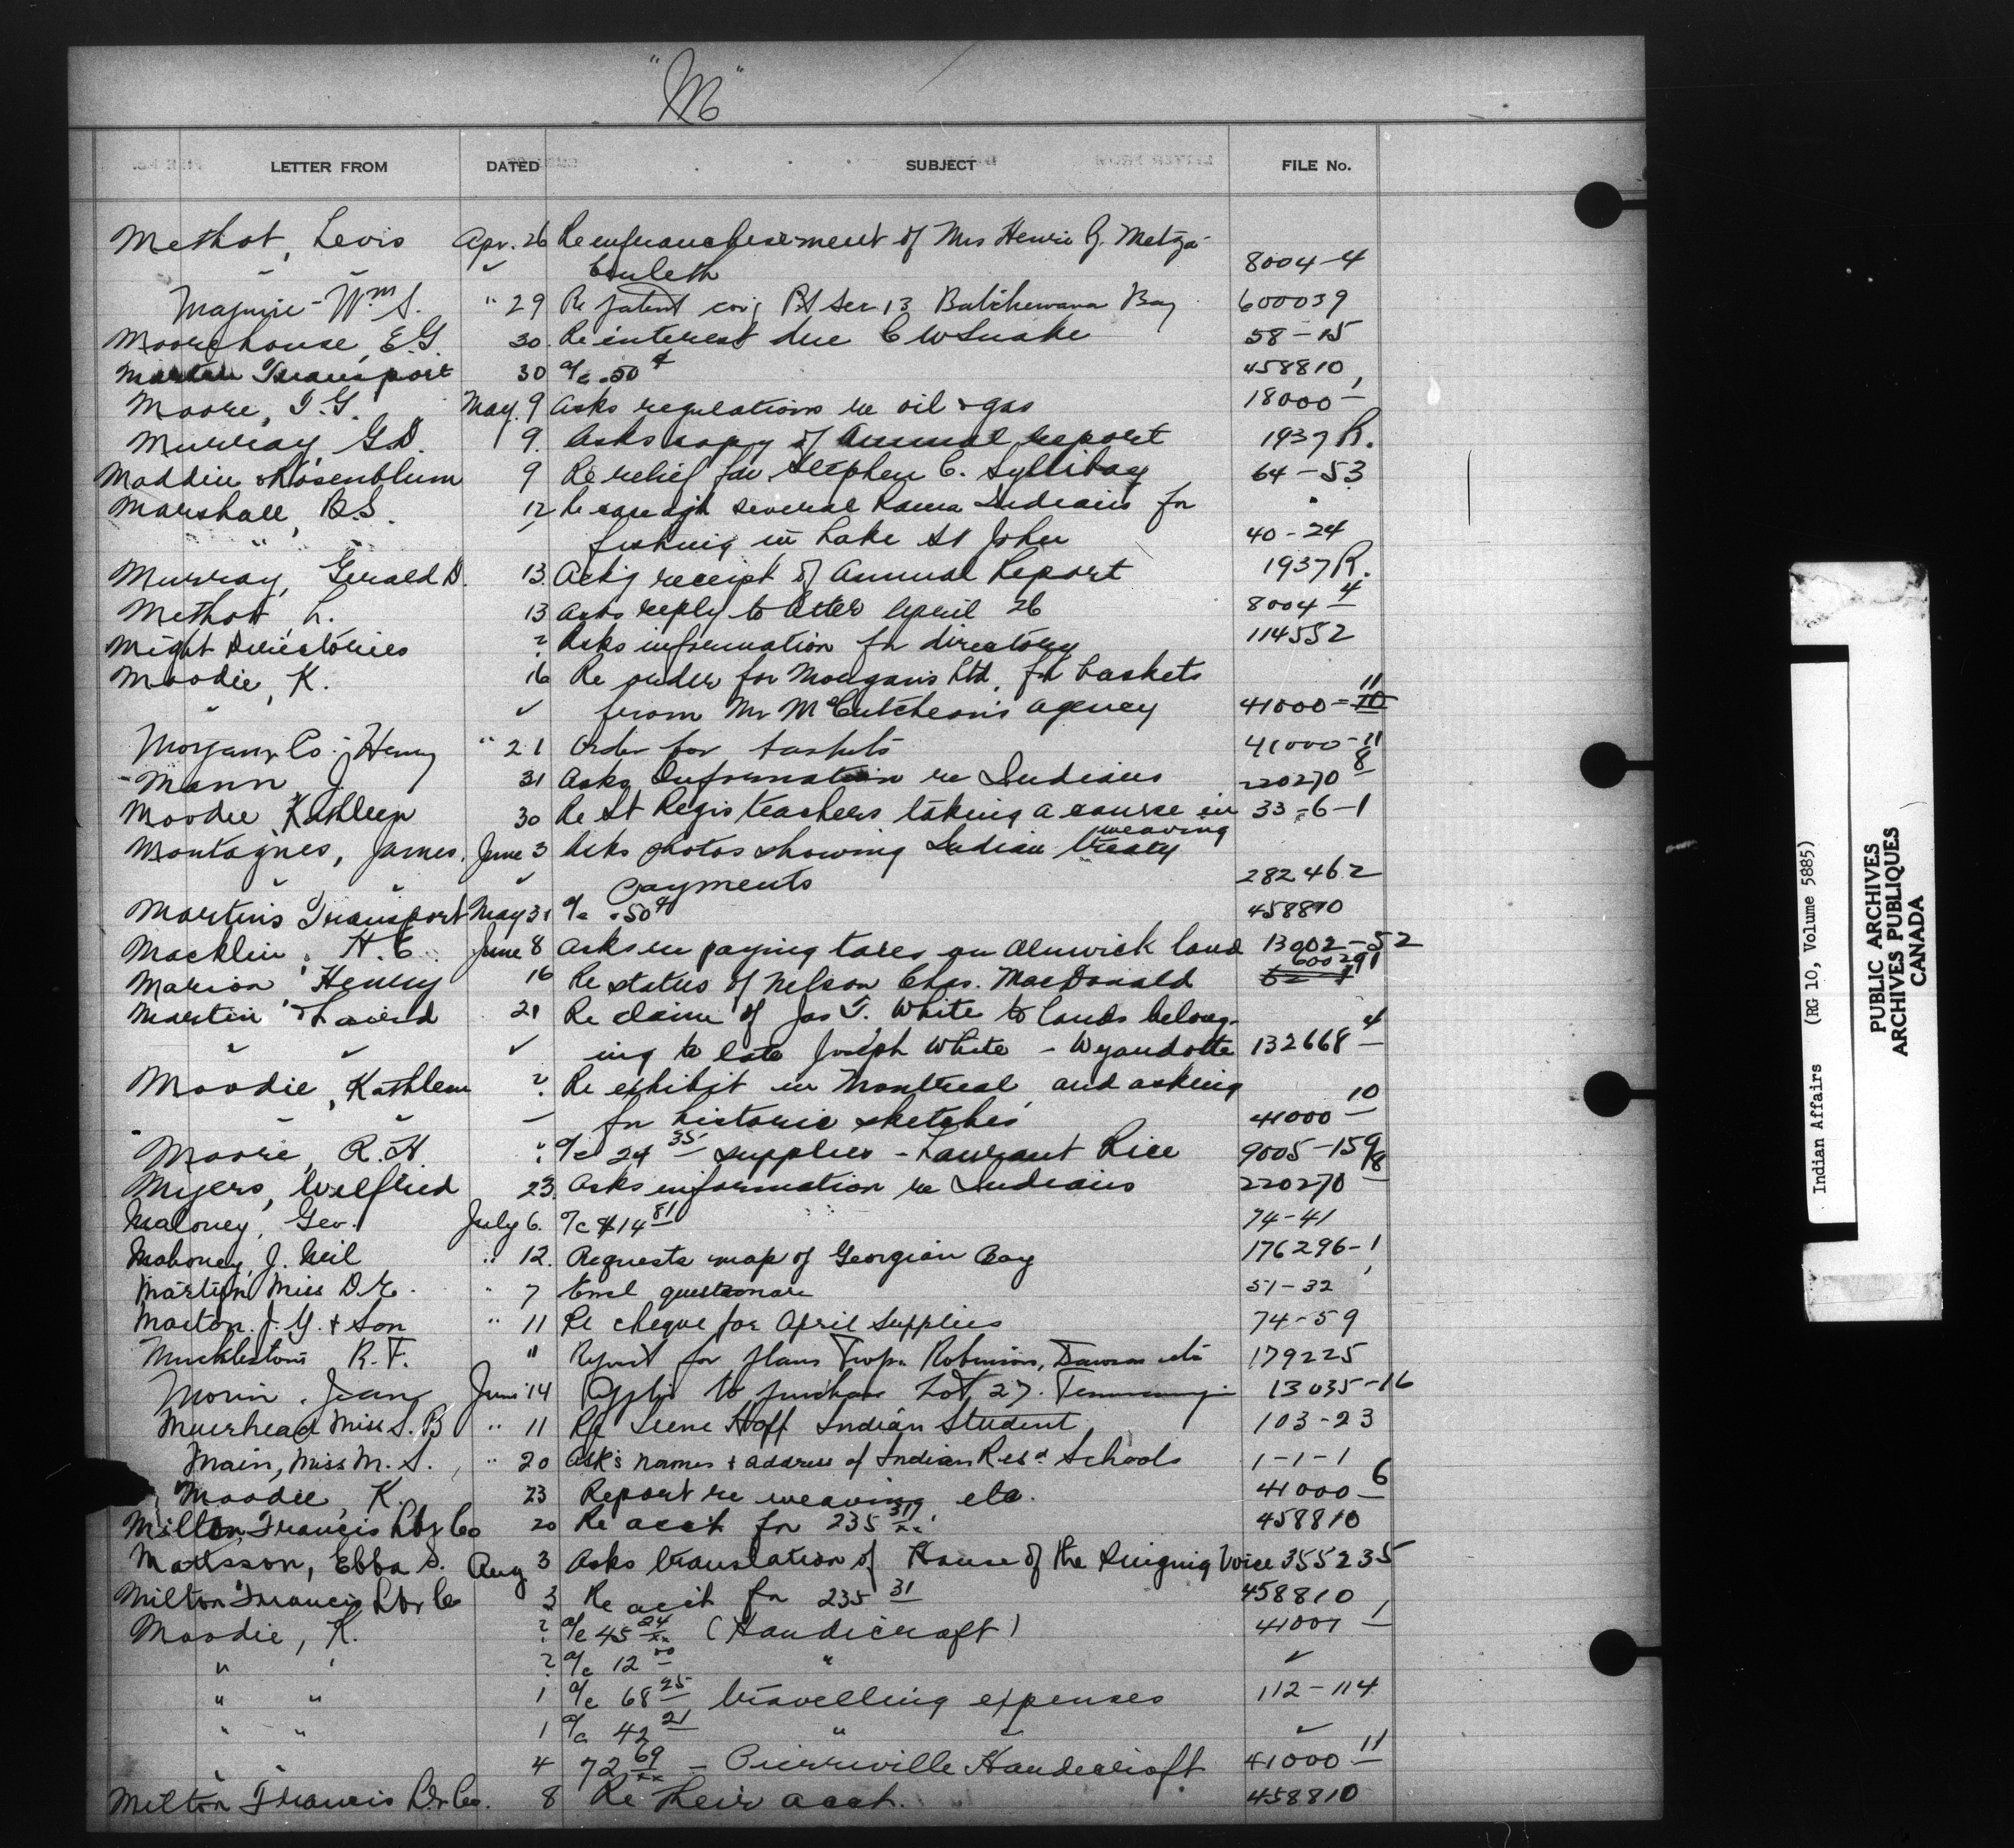 "M"
LETTER FROM DATED SUBJECT FILE No.
Methot, Levis Apr. 26 Re enfranchisement of Mrs Henri G. Metza-
8004-4
Maguire Wm S. " 29 Re patent Pt Sec 13 Batchewana Bay 600039
Moorehouse, E.G. 30. Re interest due C W Snake 58-15
Martin Transport 30 a/c .50¢ 458810
Moore, T.G. May. 9 Asks regulations re oil & gas 18000-1
Murray, G.D. 9. Asks copy of Annual report 1937 R.
Maddin & Rosenblum 9 Re relief for Stephen C. Syllibay 64-53
Marshall, B.S. 12 Re several Rama Indians for
" " fishing in Lake St John 40-24
Murray, Gerald D. 13. Ack'g receipt of Annual Report 1937 R.
Methot, L. 13 Asks reply to letter April 26 8004-4
Might Directories ? Asks information for directory 114552
Moodie, K. 16 Re order for Morgans Ltd. for baskets
" from Mr McCutcheon's agency 41000-10 11
Morgan & Co. Henry " 21 Order for baskets 41000-11
Mann J. 31 Asks Information re Indians 220270-8
Moodie, Kathleen 30 Re St Regis teachers taking a course in weaving 33-6-1
Montagnes, James. June 3 Asks photos showing Indian treaty
" " payments 282462
Martin's Transport May 31 a/c .50¢ 458810
Macklin, H.C. June 8 Asks re paying taxes on Alnwick land 13002-52
Marion, Henry 16 Re status of Nelson Chas. MacDonald 600291
Martin & Laird 21 Re claim of Jas T. White to lands belong-
" " ing to late Joseph White - Wyandotte 132668-4
Moodie, Kathleen ? Re exhibit in Montreal and asking
" " for historic sketches 41000-10
Moore, R.H. ? a/c 24 35 supplies - Laurant Rice 9005-159
Myers, Wilfried 23. Asks information re Indians 220270-8
Maloney, Geo. July 6. a/c $14 81 74-41
Mahoney, J. Neil " 12. Requests map of Georgian Bay 176296-1
Martin Miss D.E. " 7 Encl questionare 51-32
Marton. J.Y. & Son " 11 Re cheque for April Supplies 74-59
Mucklestons R.F. " Request for plans Twps. Robinson, Dawson etc 179225
Morin. Jean June 14 Applies to purchase Lot 27. 13035-16
Muirhead Miss S.B " 11 Re Irene Hoff Indian Student 103-23
Main, Miss M.S. " 20 Asks names & address of Indian Resd Schools 1-1-1
Moodie, K. 23 Report re weaving etc. 41000-6
Milton, Francis Lbr Co 20 Re acct for 235 31 458810
Mattsson, Ebba S. Aug 3 Asks translation of House of the Singing Voice 355235
Milton Francis Lbr Co 3 Re acct for 235 31 458810
Moodie, K. ? a/c 45 24 (Handicraft) 41001-1
" " ? a/c 12 00 "
" " 1 a/c 68 25 travelling expenses 112-114
" " 1 a/c 42 21 " "
" " 4 72 69 - Pierreville Handicraft 41000-11
Milton Francis Lbr Co. 8 Re their acct. 458810
Indian Affairs (RG 10, Volume 5885)
PUBLIC ARCHIVES
ARCHIVES PUBLIQUES
CANADA